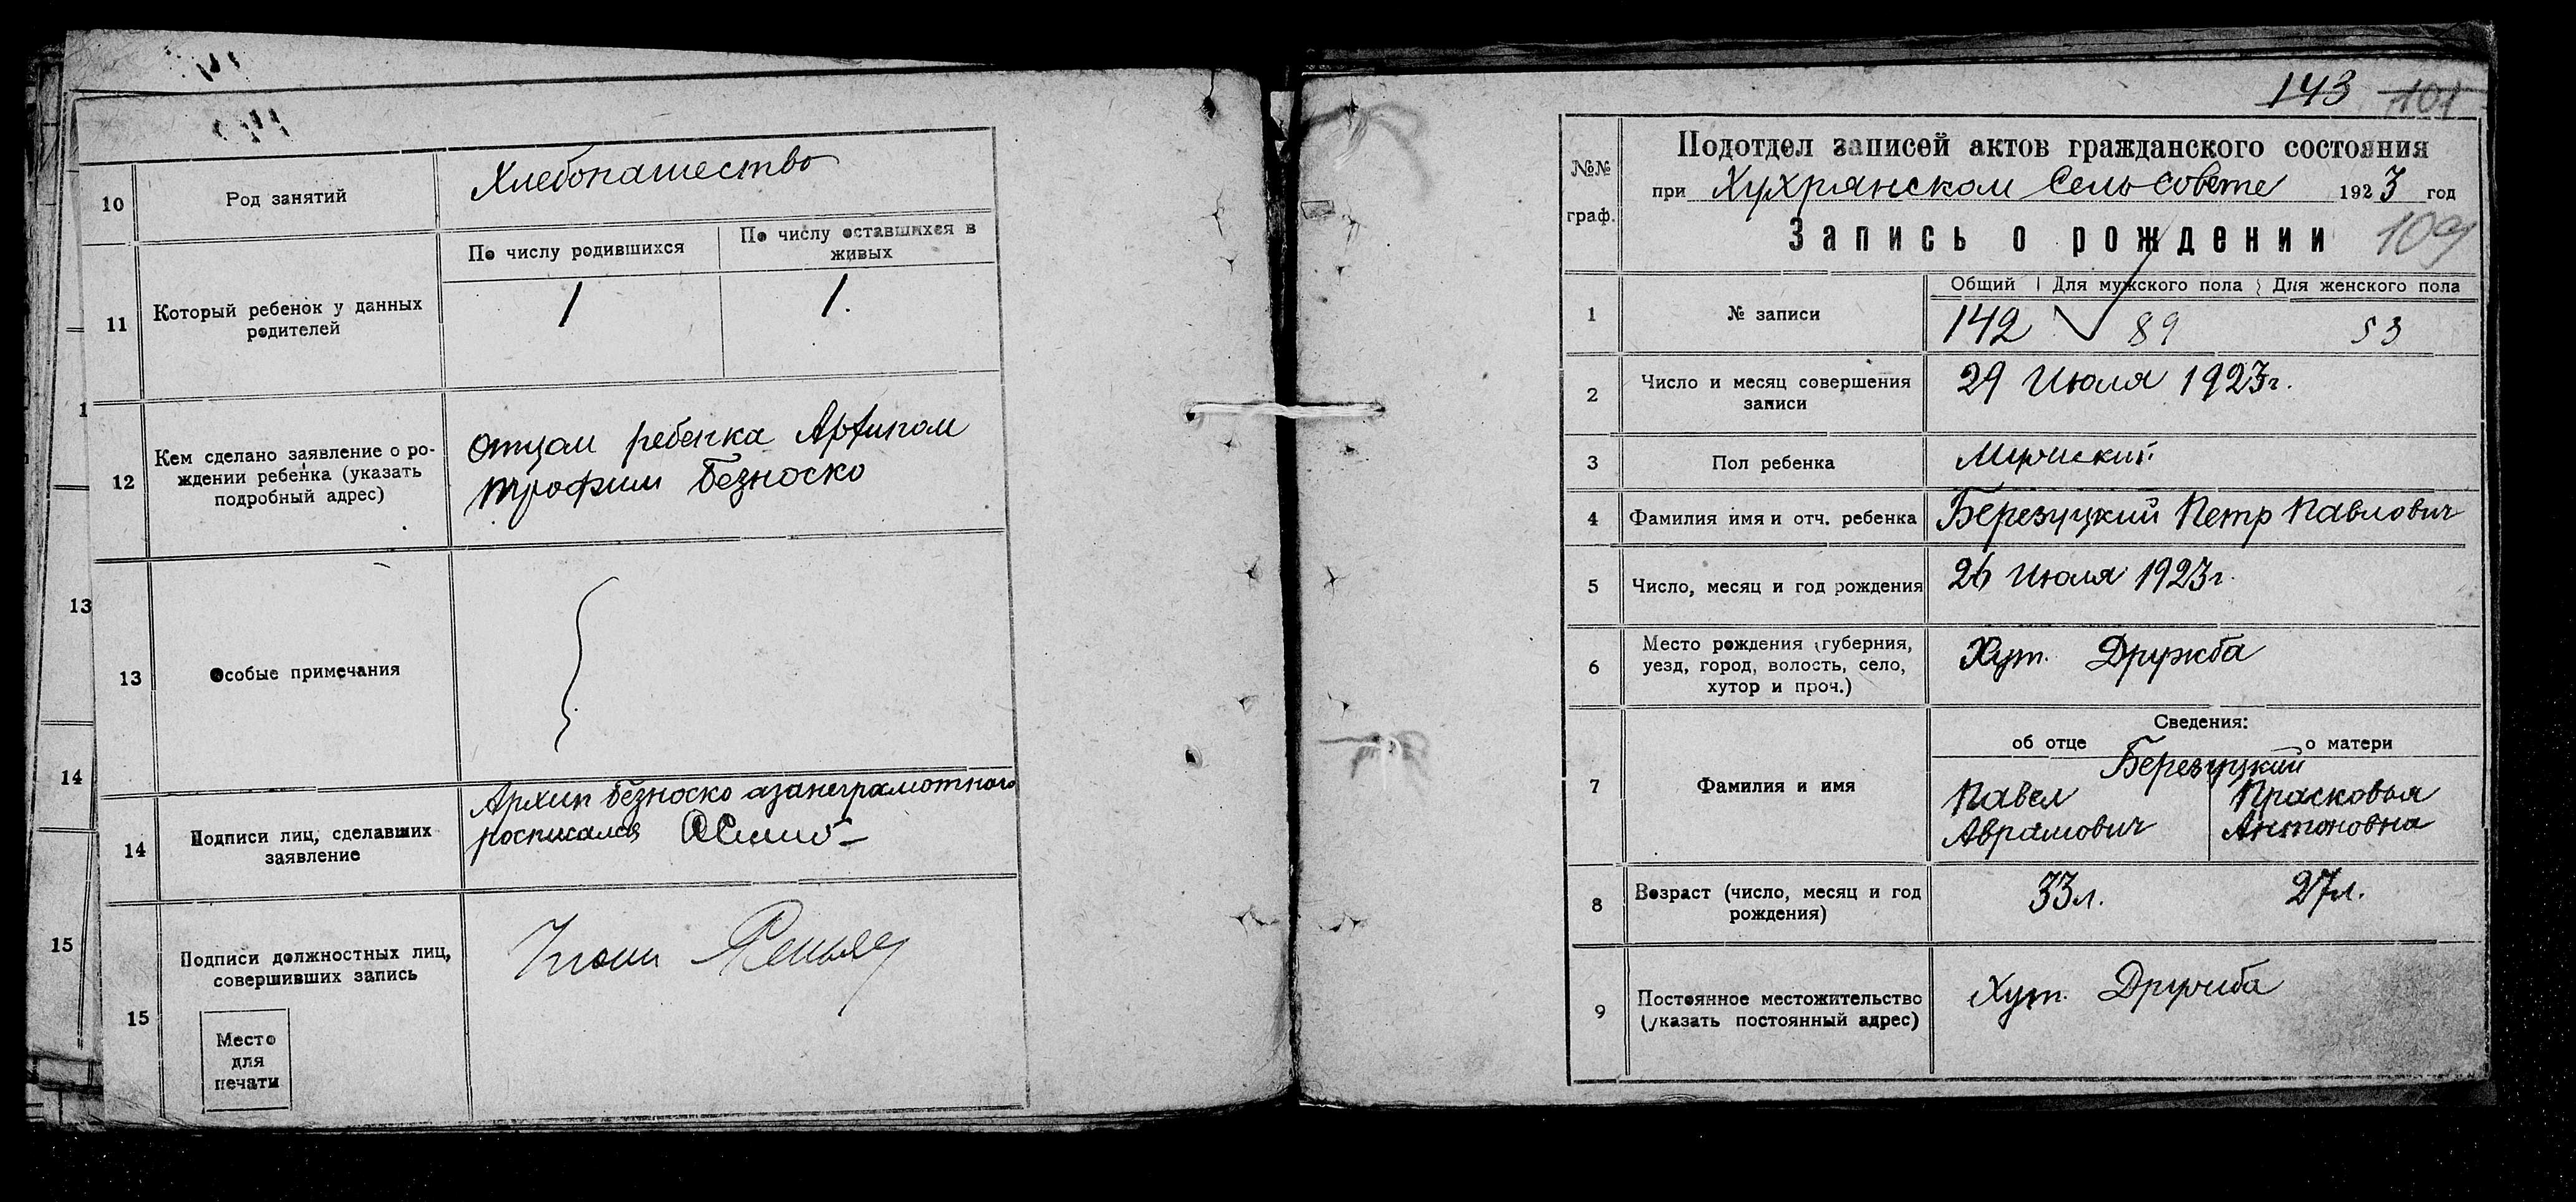 10
Род занятий
Хлебопашество
11
Который ребенок у данных
родителей
По числу родившихся
По числу оставшихся в
живых
1
1.
12
Кем сделано заявление о ро-
ждении ребенка (указать
подробный адрес)
отцом ребенка Архипом
трофим Безноско
13
Особые примечания
14
Подписи лиц, сделавших
заявление
Архип Безноско азанеграмотного
росписался
15
Подписи должностных лиц,
совершивших запись
Место
для
печати
1
13
14
15
143 101
№№
граф.
Подотдел записей актов гражданского состояния
при Хухрянском Сельсовете 1923 год
Запись о рождении 109
1
№ записи
Общий Для мужского пола Для женского пола
142 89 53
2
Число и месяц совершения
записи
29 Июля 1923г.
3
Пол ребенка
Мужский
4
Фамилия имя и отч. ребенка
Березуцкий Петр Павлович
5
Число, месяц и год рождения
26 Июля 1923г.
6
Место рождения (губерния,
уезд, город, волость, село,
хутор и проч.)
Хут. Дружба
7
Фамилия и имя
Сведения:
об отце о матери
Березуцкий
Павел Прасковья
Аврамович Антоновна
8
Возраст (число, месяц и год
рождения)
33л. 27л.
9
Постоянное местожительство
(указать постоянный адрес)
Хут. Дружба